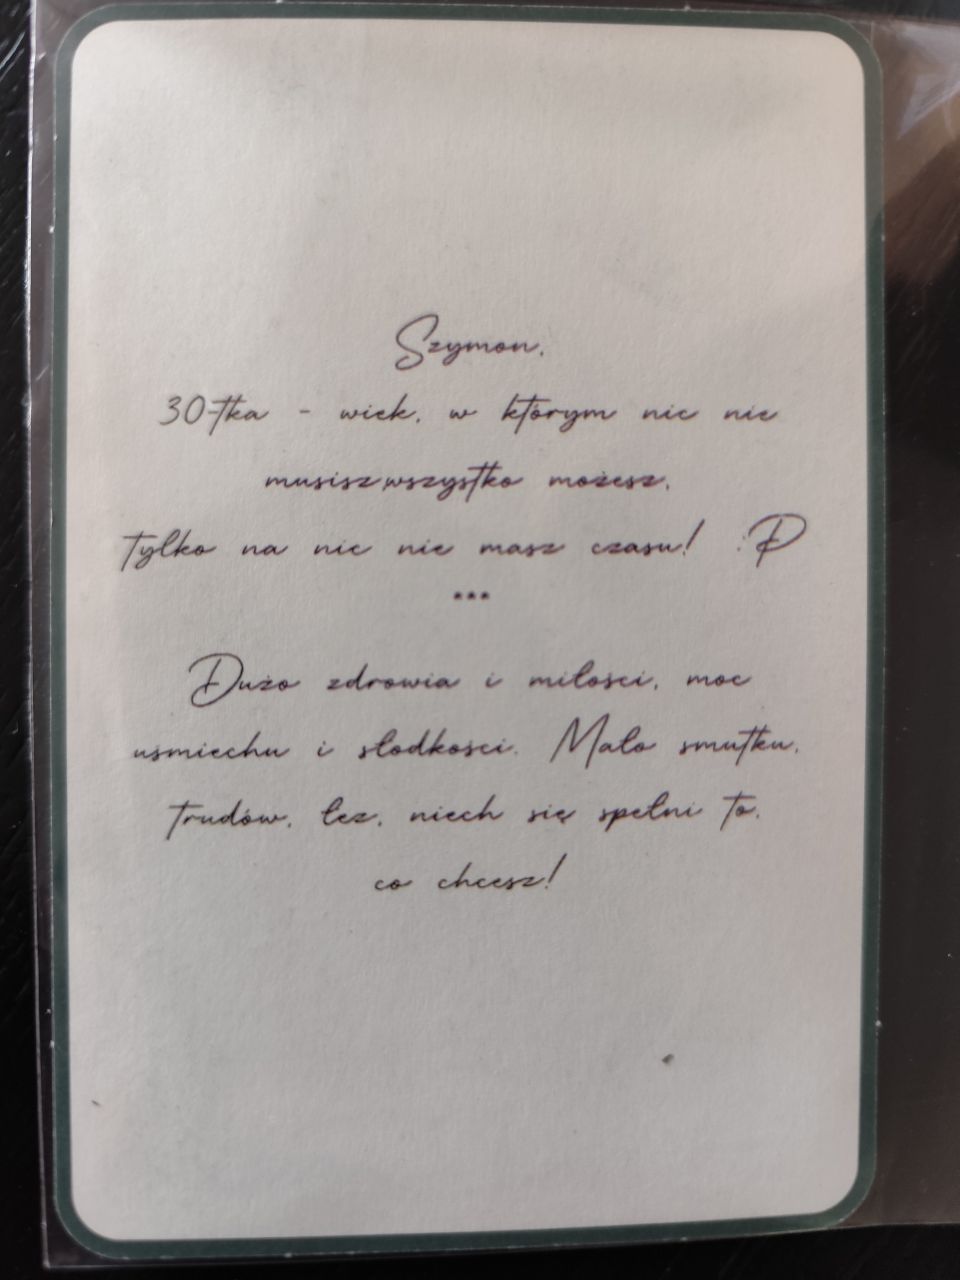 Szymon,
30-tka - wiek, w którym nic nie
musisz,wszystko możesz,
tylko na nic nie masz czasu! :P
***
Dużo zdrowia i miłości, moc
uśmiechu i słodkości. Mało smutku,
trudów, łez, niech się spełni to,
co chcesz!